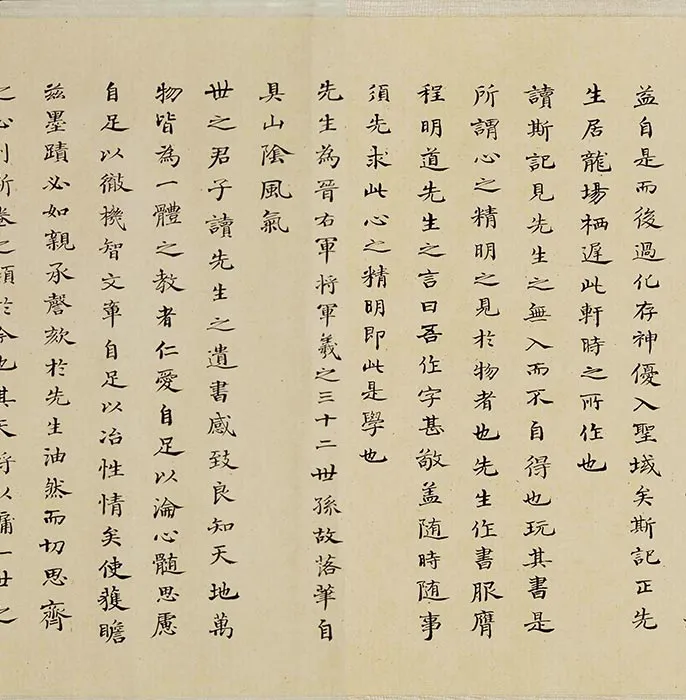 益自是而後過化存神優入聖域矣斯記正先
生居龍場栖遲此軒時之所作也
讀斯記見先生之無入而不自得也玩其書是
所謂心之精明之見於物者也先生作書服膺
程明道先生之言曰吾作字甚敬蓋随時随事
須先求此心之精明即此是學也
先生為晉右軍将軍羲之三十二世孫故落華自
具山陰風氣
世之君子讀先生之遺書感致良知天地萬
物皆為一體之教者仁愛自足以淪心髓思慮
自足以徹機智文章自足以冶性情矣使獲瞻
茲墨蹟必如親承謦欬於先生油然而切思齊
之心則斯卷之顯於今也其天将以牖一世之